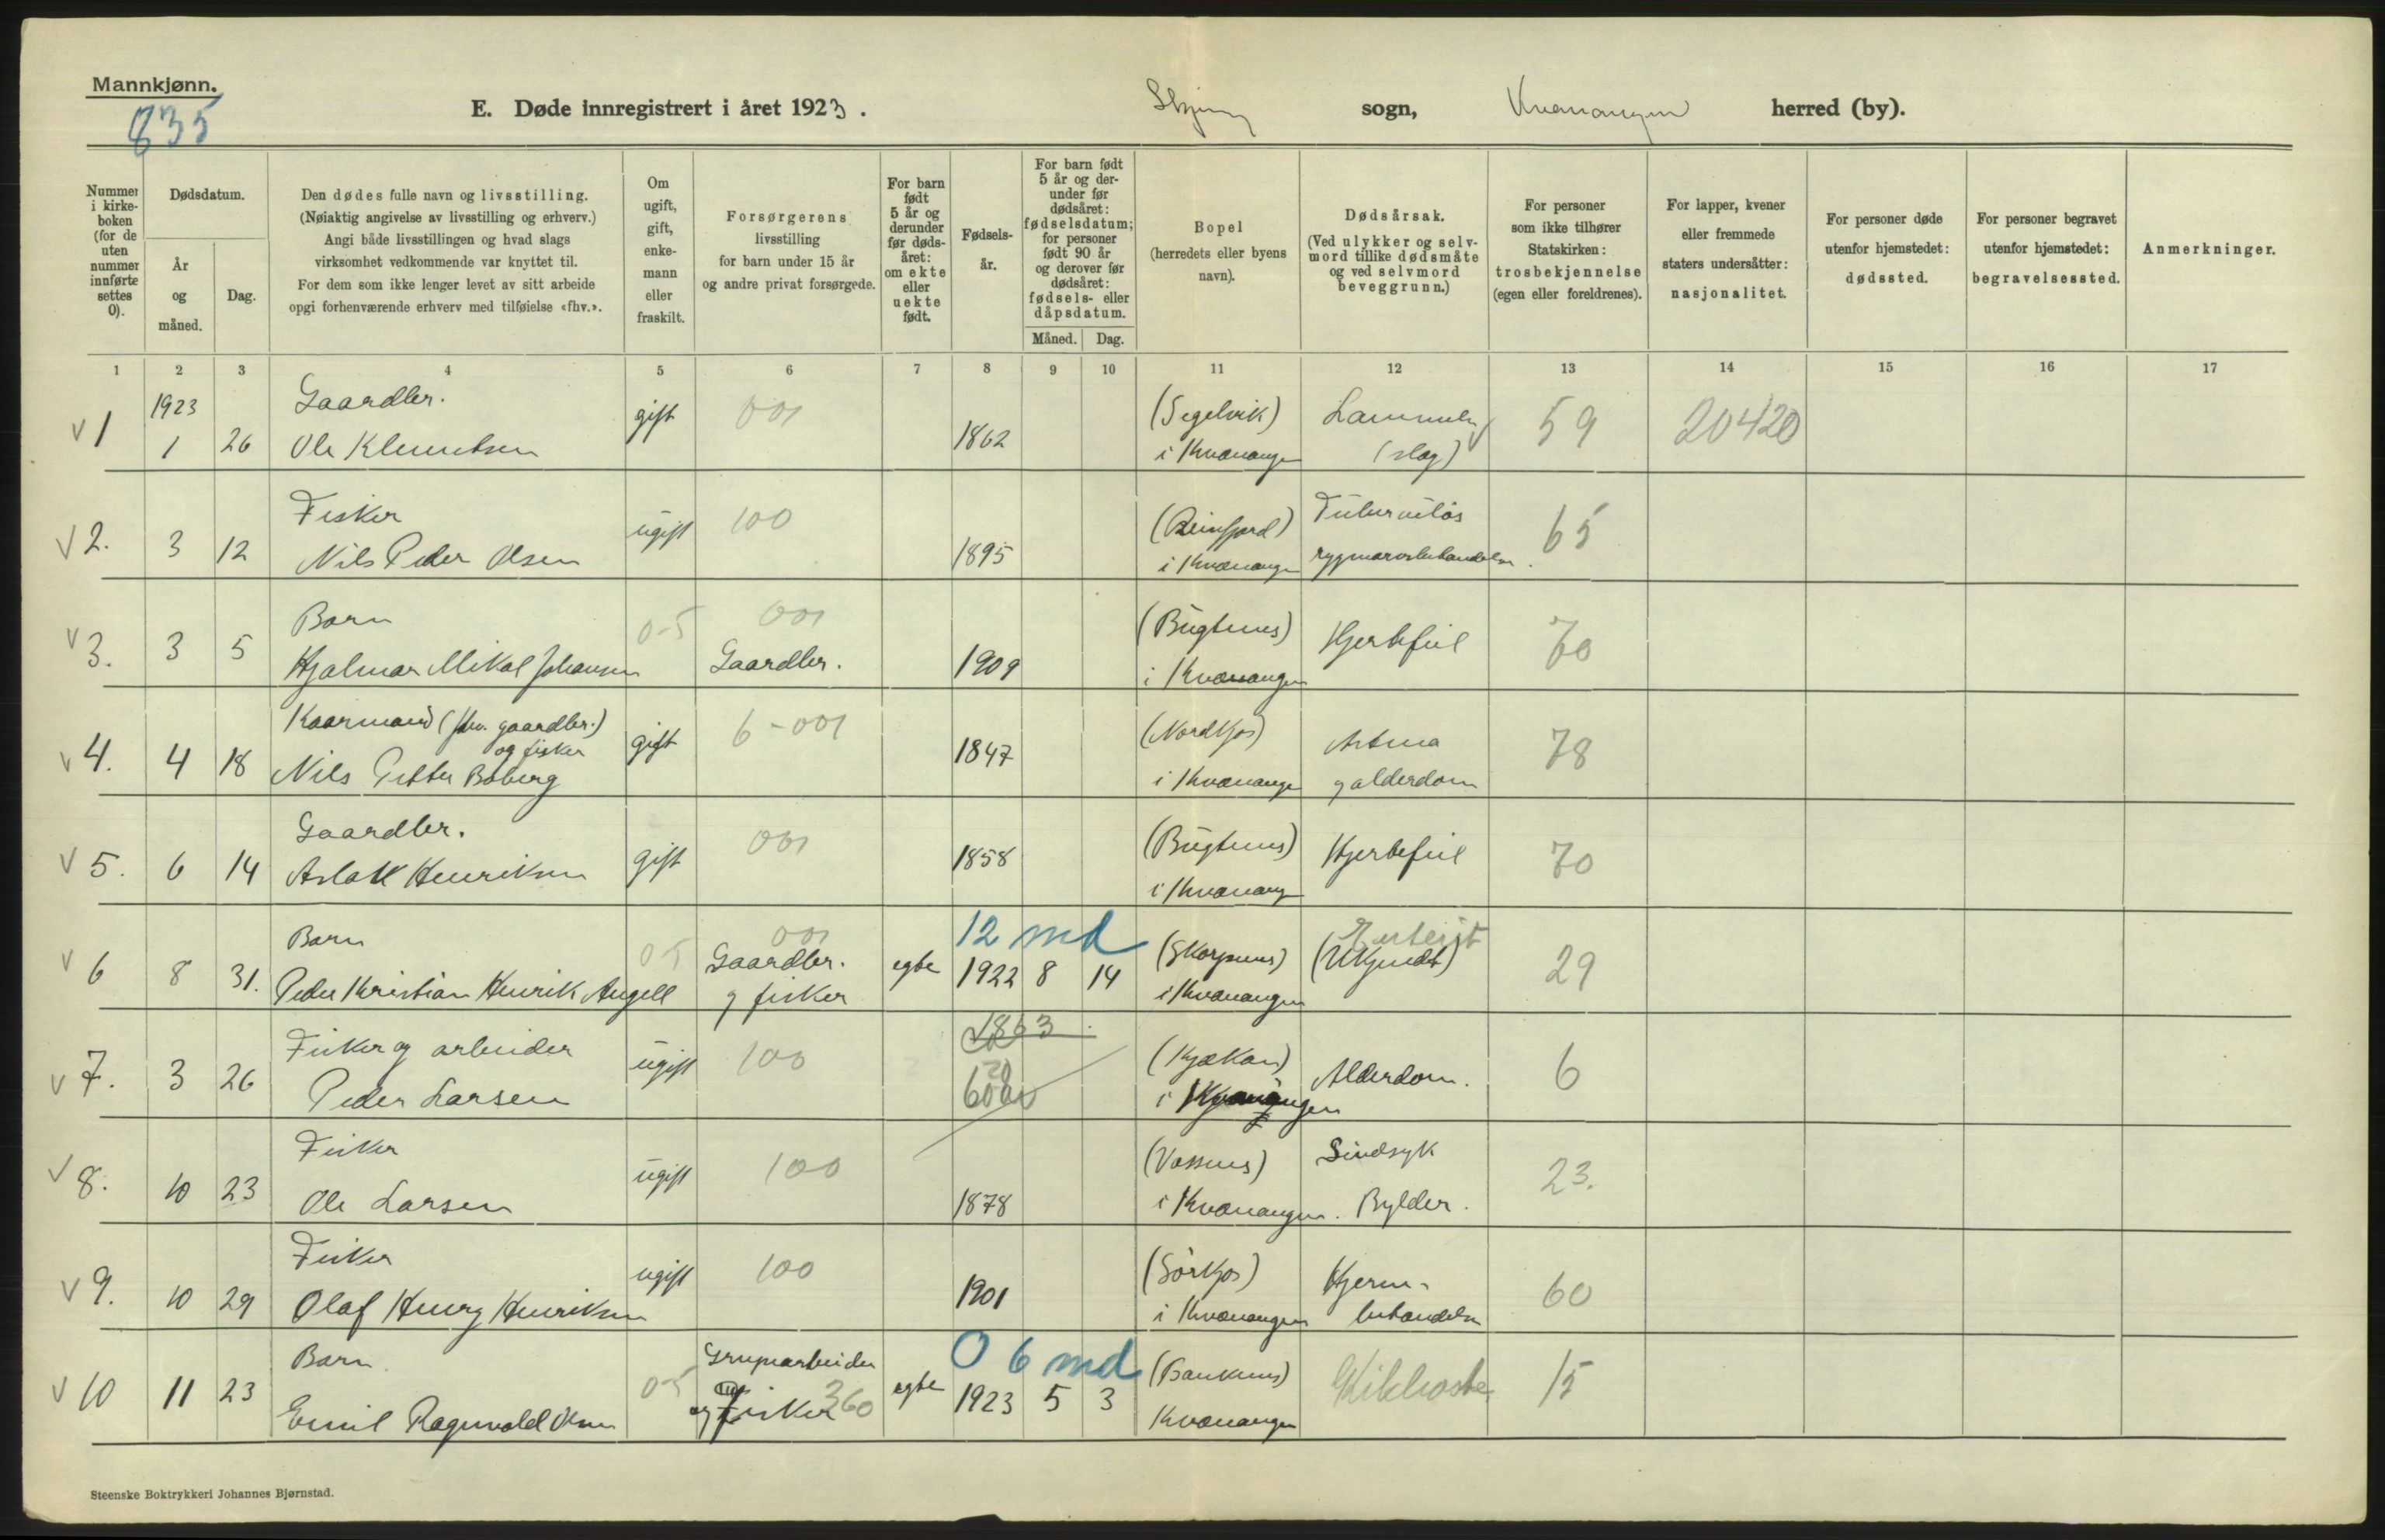 Mannkjønn.
835
E. Døde innregistrert i året 1923.
sogn,
herred (by).
Nummer i kirke-boken (for de uten nummer innførte settes 0).
Dødsdatum.
År og måned.
Dag.
Den dødes fulle navn og livsstilling.
(Nøiaktig angivelse av livsstilling og erhverv.)
Angi både livsstillingen og hvad slags
virksomhet vedkommende var knyttet til.
For dem som ikke lenger levet av sitt arbeide
opgi forhenværende erhverv med tilføielse «fhv.».
Om ugift, gift, enke-mann eller fraskilt.
Forsørgerens
livsstilling
for barn under 15 år
og andre privat forsørgede.
For barn født 5 år og derunder før døds-året: om ekte eller uekte født.
Fødsels-år.
For barn født 5 år og der-under før dødsåret: fødselsdatum; for personer født 90 år og derover før dødsåret: fødsels- eller dåpsdatum.
Måned.
Dag.
Bopel
(herredets eller byens navn).
Dødsårsak.
(Ved ulykker og selv-mord tillike dødsmåte og ved selvmord beveggrunn.)
For personer som ikke tilhører Statskirken: trosbekjennelse (egen eller foreldrenes).
For lapper, kvener eller fremmede staters undersåtter: nasjonalitet.
For personer døde utenfor hjemstedet: dødssted.
For personer begravet utenfor hjemstedet: begravelsessted.
Anmerkninger.
1 2 3 4 5 6 7 8 9 10 11 12 13 14 15 16 17
1923 Gaardbr. 001 (Segelvik)
v 1 1 26 Ole Klemetsen gift 1862 i Kvænangen (slag) 59 20420
Fisker 100
v 2. 3 12 Nils Peder Olsen ugift 1895 (Reinfjord) i Kvænangen 65
Barn 0-5 001
v 3. 3 5 Hjalmar Mikal Johansen Gaardbr. 1909 (Bugtnes) i Kvænangen Hjertefeil 70
Kaarmand (fhv. gaardbr.) og fisker 6-001
v 4. 4 18 Nils Petter Boberg gift 1847 (Nordkjos) i Kvænangen Astma og alderdom 78
Gaardbr. 001
v 5. 6 14 Aslak Henriksen gift 1858 (Bugtnes) i Kvænangen Hjertefeil 70
Barn 05 001 12 md
v 6 8 31. Peder Kristian Henrik Angell Gaardbr. og fisker egte 1922 8 14 (Skorpnes) i Kvænangen (Ukjendt) 29
Fisker og arbeider 100 1863
v 7. 3 26 Peder Larsen ugift 60 år (Kjækan) i Kvænangen Alderdom. 6
Fisker 100
v 8. 10 23 Ole Larsen ugift 1878 (Vassnes) i Kvænangen. Sindsyk Bylder. 23.
Fisker 100
v 9. 10 29 Olaf Henry Henriksen ugift 1901 (Sørkjos) i Kvænangen 60
Barn 05 Grupearbeider 0 6 md
v 10 11 23 Emil Ragnvald og Fisker 360 egte 1923 5 3 Kvænangen Kikhoste 15
Steenske Boktrykkeri Johannes Bjørnstad.